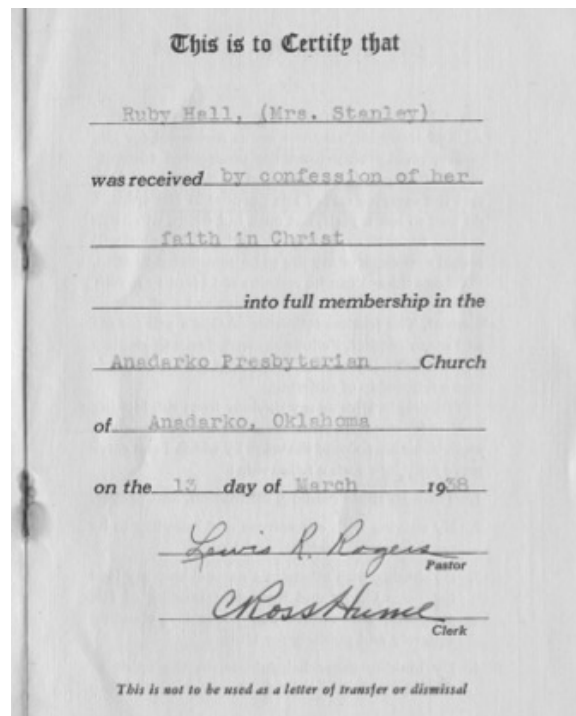 This is to Certify that
Ruby Hall, (Mrs. Stanley)
was received by confession of her
faith in Christ
into full membership in the
Anadarko Presbyterian Church
of Anadarko, Oklahoma
on the 13 day of March 1938
Lewis R. Rogers
Pastor
C Ross Hume
Clerk
This is not to be used as a letter of transfer or dismissal